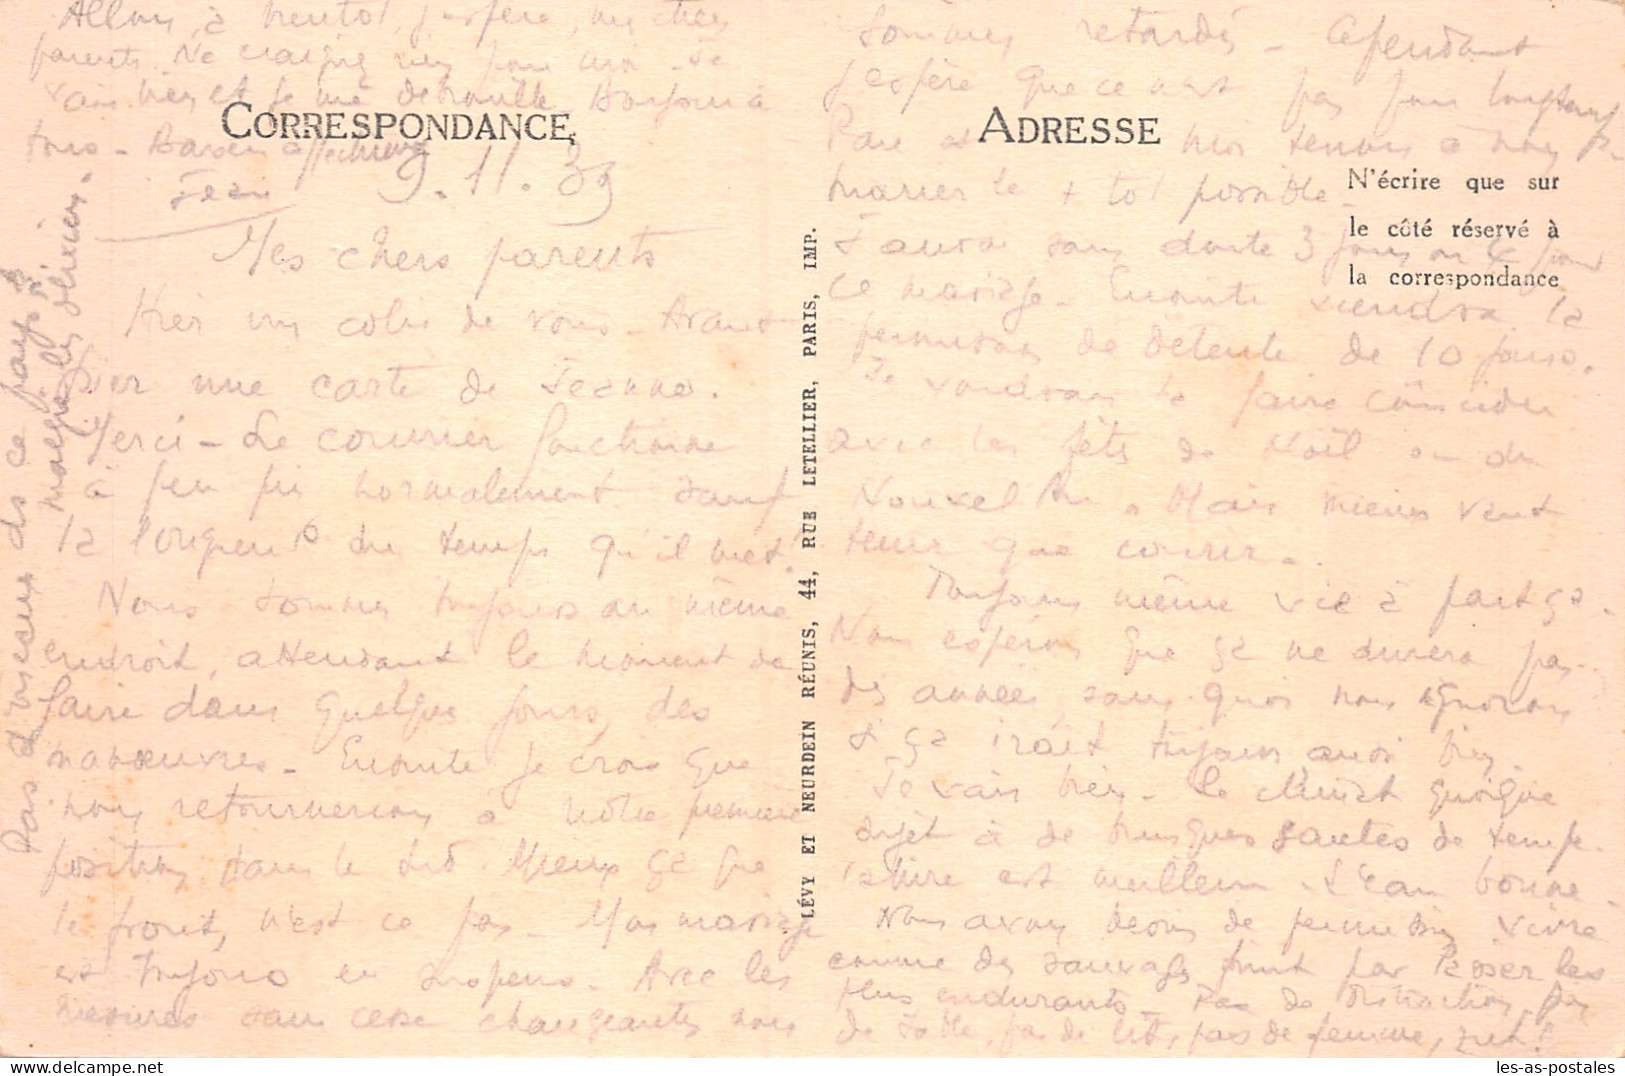 CORRESPONDANCE
ADRESSE
N'écrire que sur
le côté réservé à
la correspondance
LÉVY ET NEURDEIN RÉUNIS, 44, RUE LETELLIER, PARIS, IMP.
9.11.39
Mes chers parents
Hier un colis de vous - Avant
hier une carte de Jeanne.
Merci - Le courrier fonctionne
à peu près normalement sauf
la longueur du temps qu'il met!
Nous sommes toujours au même
endroit, attendant le moment de
faire dans quelques jours, des
manœuvres - Ensuite je crois que
nous retournerons à notre première
position dans le Sud. Mieux ça que
le front, n'est ce pas - Mon mariage
est toujours en suspens - Avec les
mesures sans cesse changeantes nous
sommes retardés - Cependant
j'espère que ce n'est pas pour longtemps
et moi tenons à nous
marier le + tôt possible -
J'aurai sans doute 3 jours ou 4 pour
ce mariage - Ensuite viendra la
permission de détente de 10 jours.
Je voudrais la faire coïncider
avec les fêtes de Noël ou du
Nouvel An. Mais mieux vaut
tenir que courir -
Toujours même vie à part ça.
Nous espérons que ça ne durera pas
des années, sans quoi nous
ça irait toujours aussi bien.
Je vais bien - Le climat quoique
sujet à de brusques sautes de tempé-
rature est meilleur. L'eau bonne -
Nous avons besoin de permission vivre
comme des sauvages finit par lasser les
plus endurants - Pas de distraction, pas
de table, pas de lits, pas de femme, zut!
Allons, à bientôt, j'espère, mes chers
parents. Ne craignez rien pour moi - Je
vais bien et je me débrouille. Bonjour à
tous - Baisers affectueux
Jean
Pas d'oiseaux ds ce pays là
malgré les oliviers.